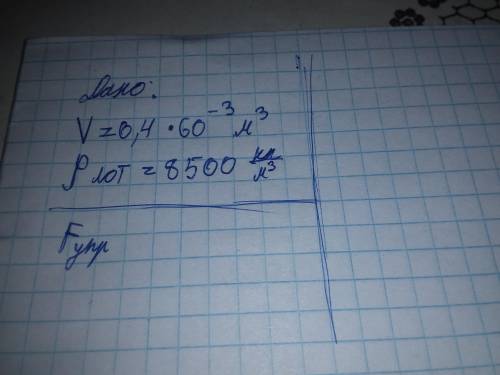 Дано:
V = 0,4 · 60⁻³ м³
ρ лот = 8500 кг/м³
Fупр